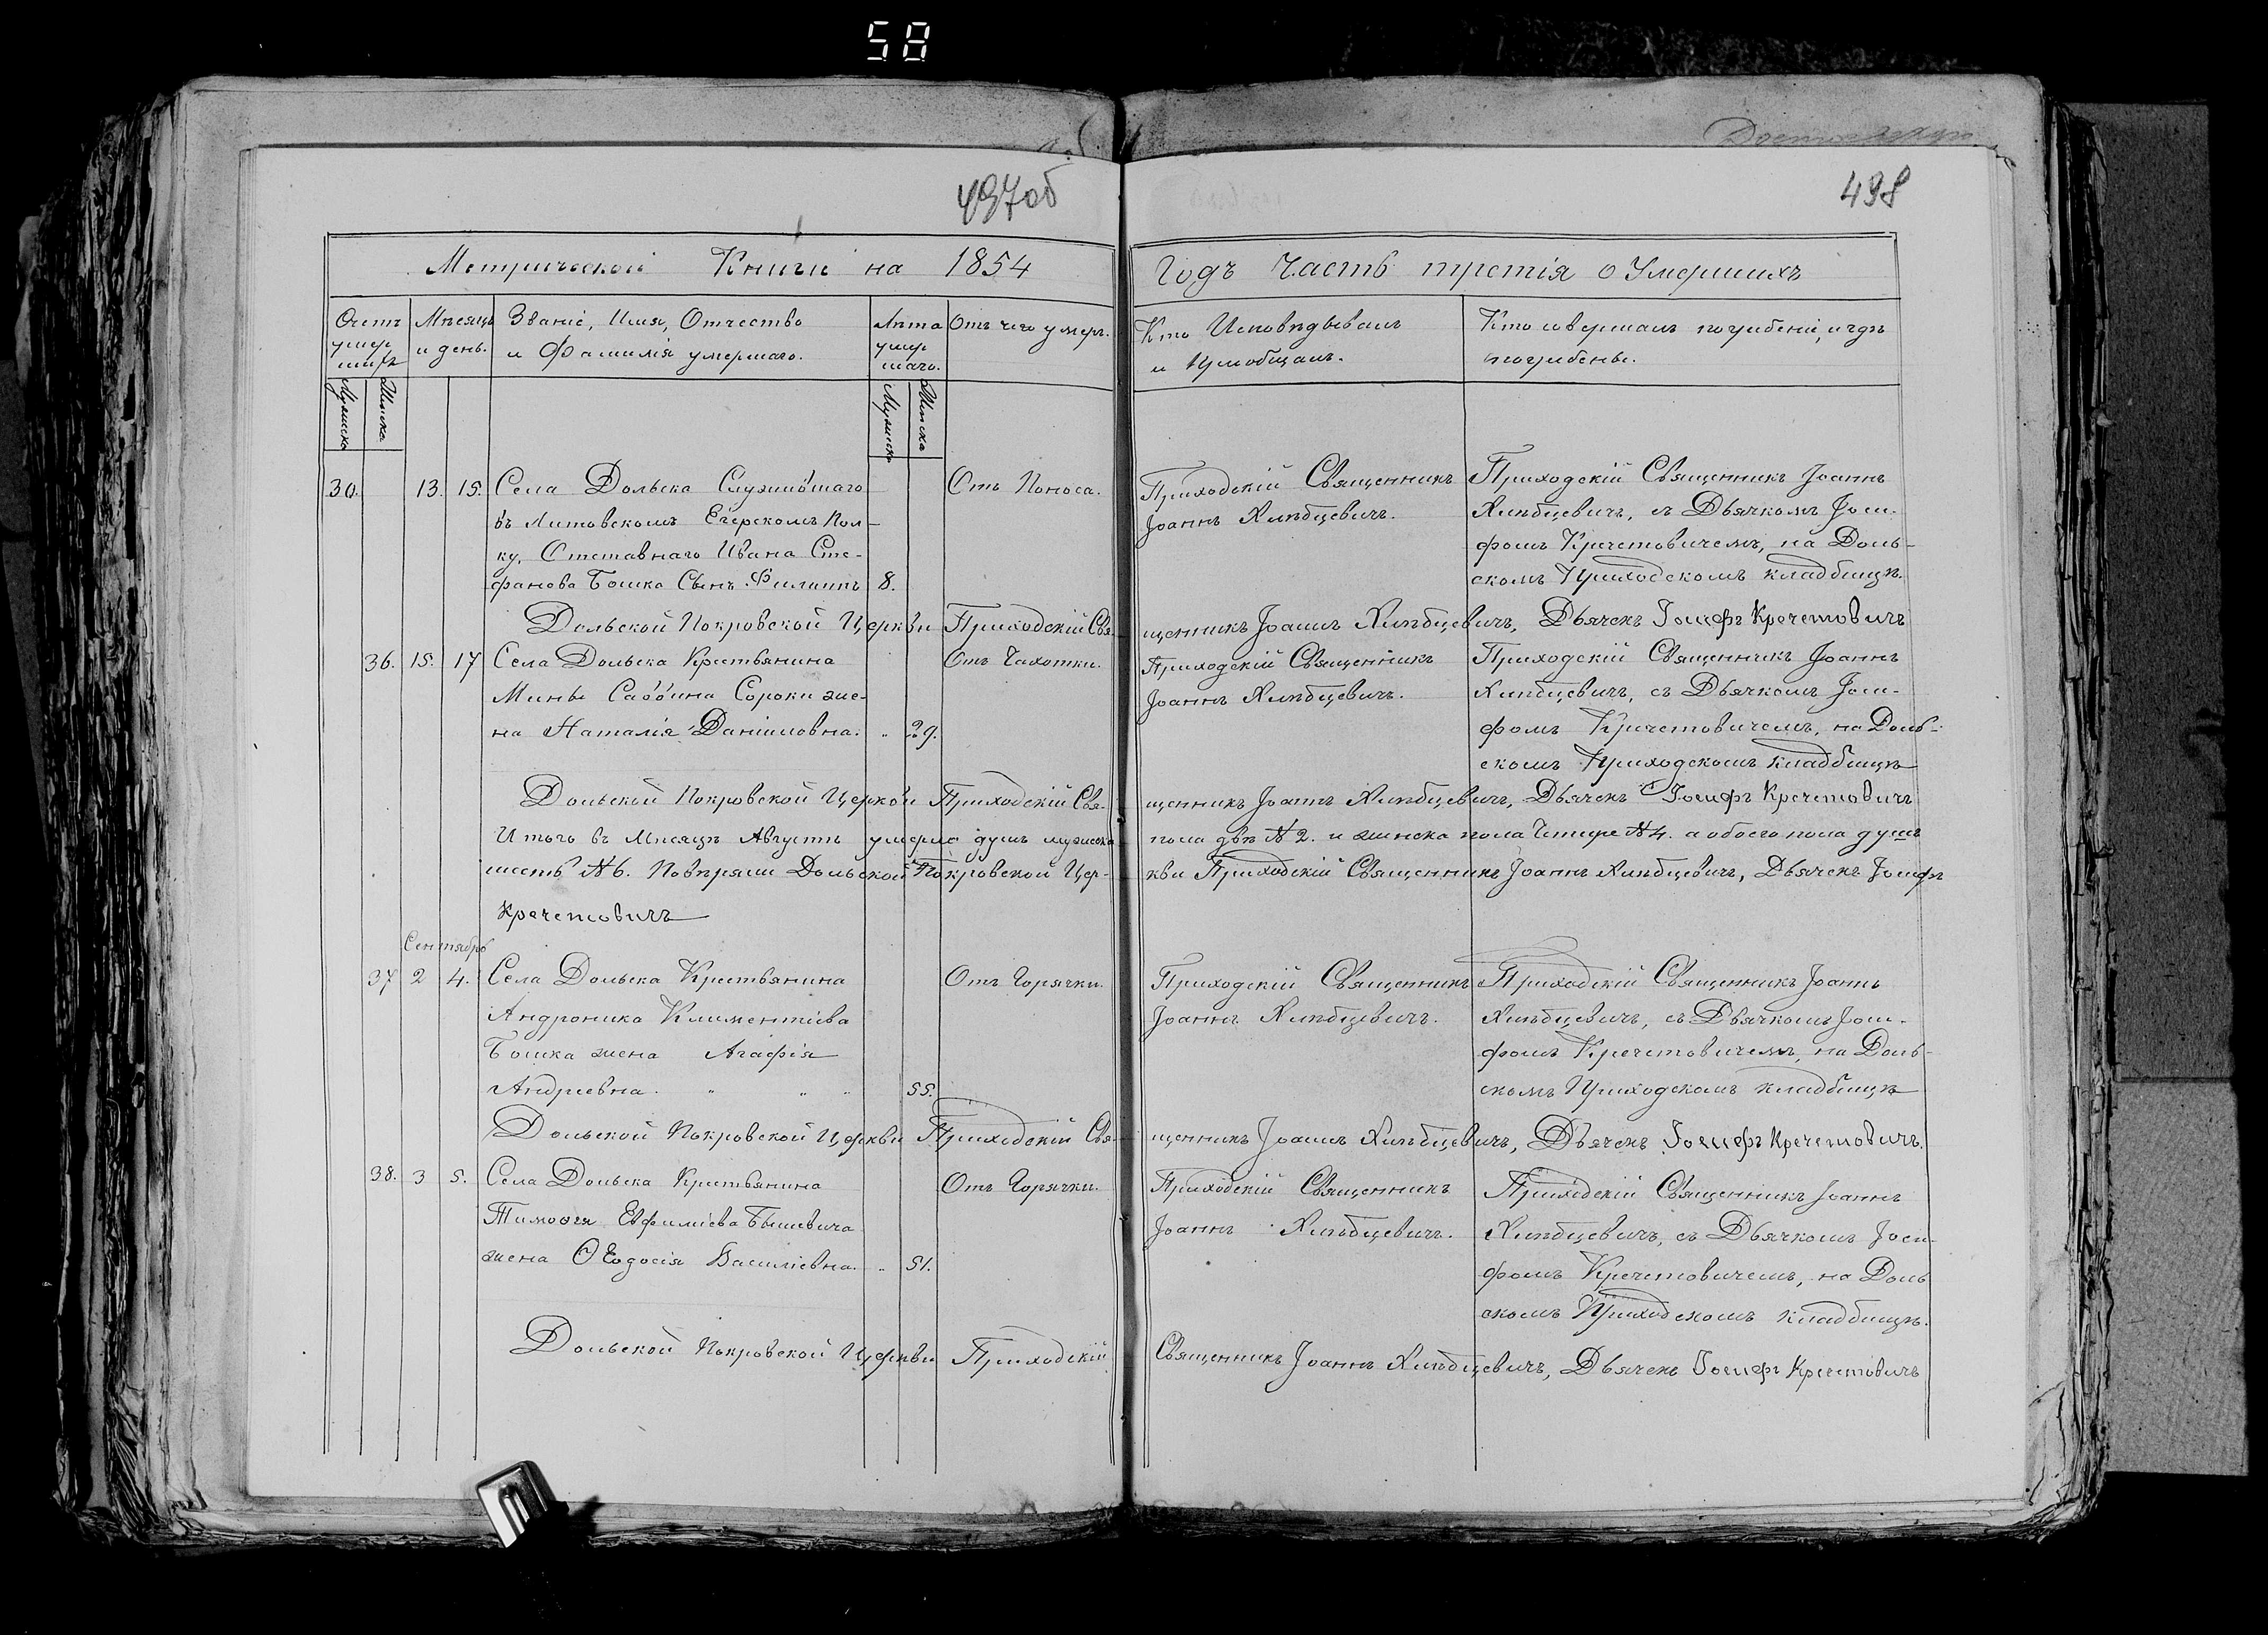 58
497об
498
Метрической Книги на 1854
Годъ Часть третія о Умершихъ
Счетъ умершихъ
Мѣсяцъ и день.
Званіе, Имя, Отчество
и Фамилія умершаго.
Лѣта умершаго.
Отъ чего умеръ.
Кто Исповѣдывалъ
и пріобщалъ.
Кто совершалъ погребеніе, и гдѣ
погребены.
Мужеска
Женска
Мужеска
Женска
30. 13. 15. Села Дольска Служившаго
въ Литовскомъ Егерскомъ Пол-
ку, Отставнаго Ивана Сте-
фанова Бошка Сынъ Филиппъ 8.
Отъ Поноса.
Приходскій Священникъ
Іоаннъ Хлѣбцевичъ.
Приходскій Священникъ Іоаннъ
Хлѣбцевичъ, съ Дьячкомъ Іоси-
фомъ Кречетовичемъ, на Доль-
скомъ Приходскомъ кладбищѣ.
Дольской Покровской Церкви Приходскій Свя-
щенникъ Іоаннъ Хлѣбцевичъ, Дьячекъ Іосифъ Кречетовичъ
36. 15. 17 Села Дольска Крестьянина
Мины Саввина Сороки же-
на Наталія Даніиловна. " 29.
Отъ Чахотки.
Приходскій Священникъ
Іоаннъ Хлѣбцевичъ.
Приходскій Священникъ Іоаннъ
Хлѣбцевичъ, съ Дьячкомъ Іоси-
фомъ Кречетовичемъ, на Доль-
скомъ Приходскомъ кладбищѣ
Дольской Покровской Церкви Приходскій Свя-
щенникъ Іоаннъ Хлѣбцевичъ, Дьячекъ Іосифъ Кречетовичъ
Итого въ Мѣсяцѣ Августѣ умерло душъ мужеска
пола двѣ №2. и женска пола Четыре №4. а обоего пола душъ
шесть №6. Повѣряли Дольской Покровской Цер-
кви Приходскій Священникъ Іоаннъ Хлѣбцевичъ, Дьячекъ Іосифъ
Кречетовичъ
Сентябрь
37 2 4. Села Дольска Крестьянина
Андроника Климентіева
Бошка жена Агафія
Андреевна. " " " 55.
Отъ Горячки.
Приходскій Священникъ
Іоаннъ Хлѣбцевичъ.
Приходскій Священникъ Іоаннъ
Хлѣбцевичъ, съ Дьячкомъ Іоси-
фомъ Кречетовичемъ, на Доль-
скомъ Приходскомъ кладбищѣ
Дольской Покровской Церкви Приходскій Свя-
щенникъ Іоаннъ Хлѣбцевичъ, Дьячекъ Іосифъ Кречетовичъ.
38. 3 5. Села Дольска Крестьянина
Тимоѳея Евфиміева Бышевича
жена Ѳеодосія Василіевна. " 51.
Отъ Горячки.
Приходскій Священникъ
Іоаннъ Хлѣбцевичъ.
Приходскій Священникъ Іоаннъ
Хлѣбцевичъ, съ Дьячкомъ Іоси-
фомъ Кречетовичемъ, на Доль
скомъ Приходскомъ кладбищѣ.
Дольской Покровской Церкви Приходскій
Священникъ Іоаннъ Хлѣбцевичъ, Дьячекъ Іосифъ Кречетовичъ